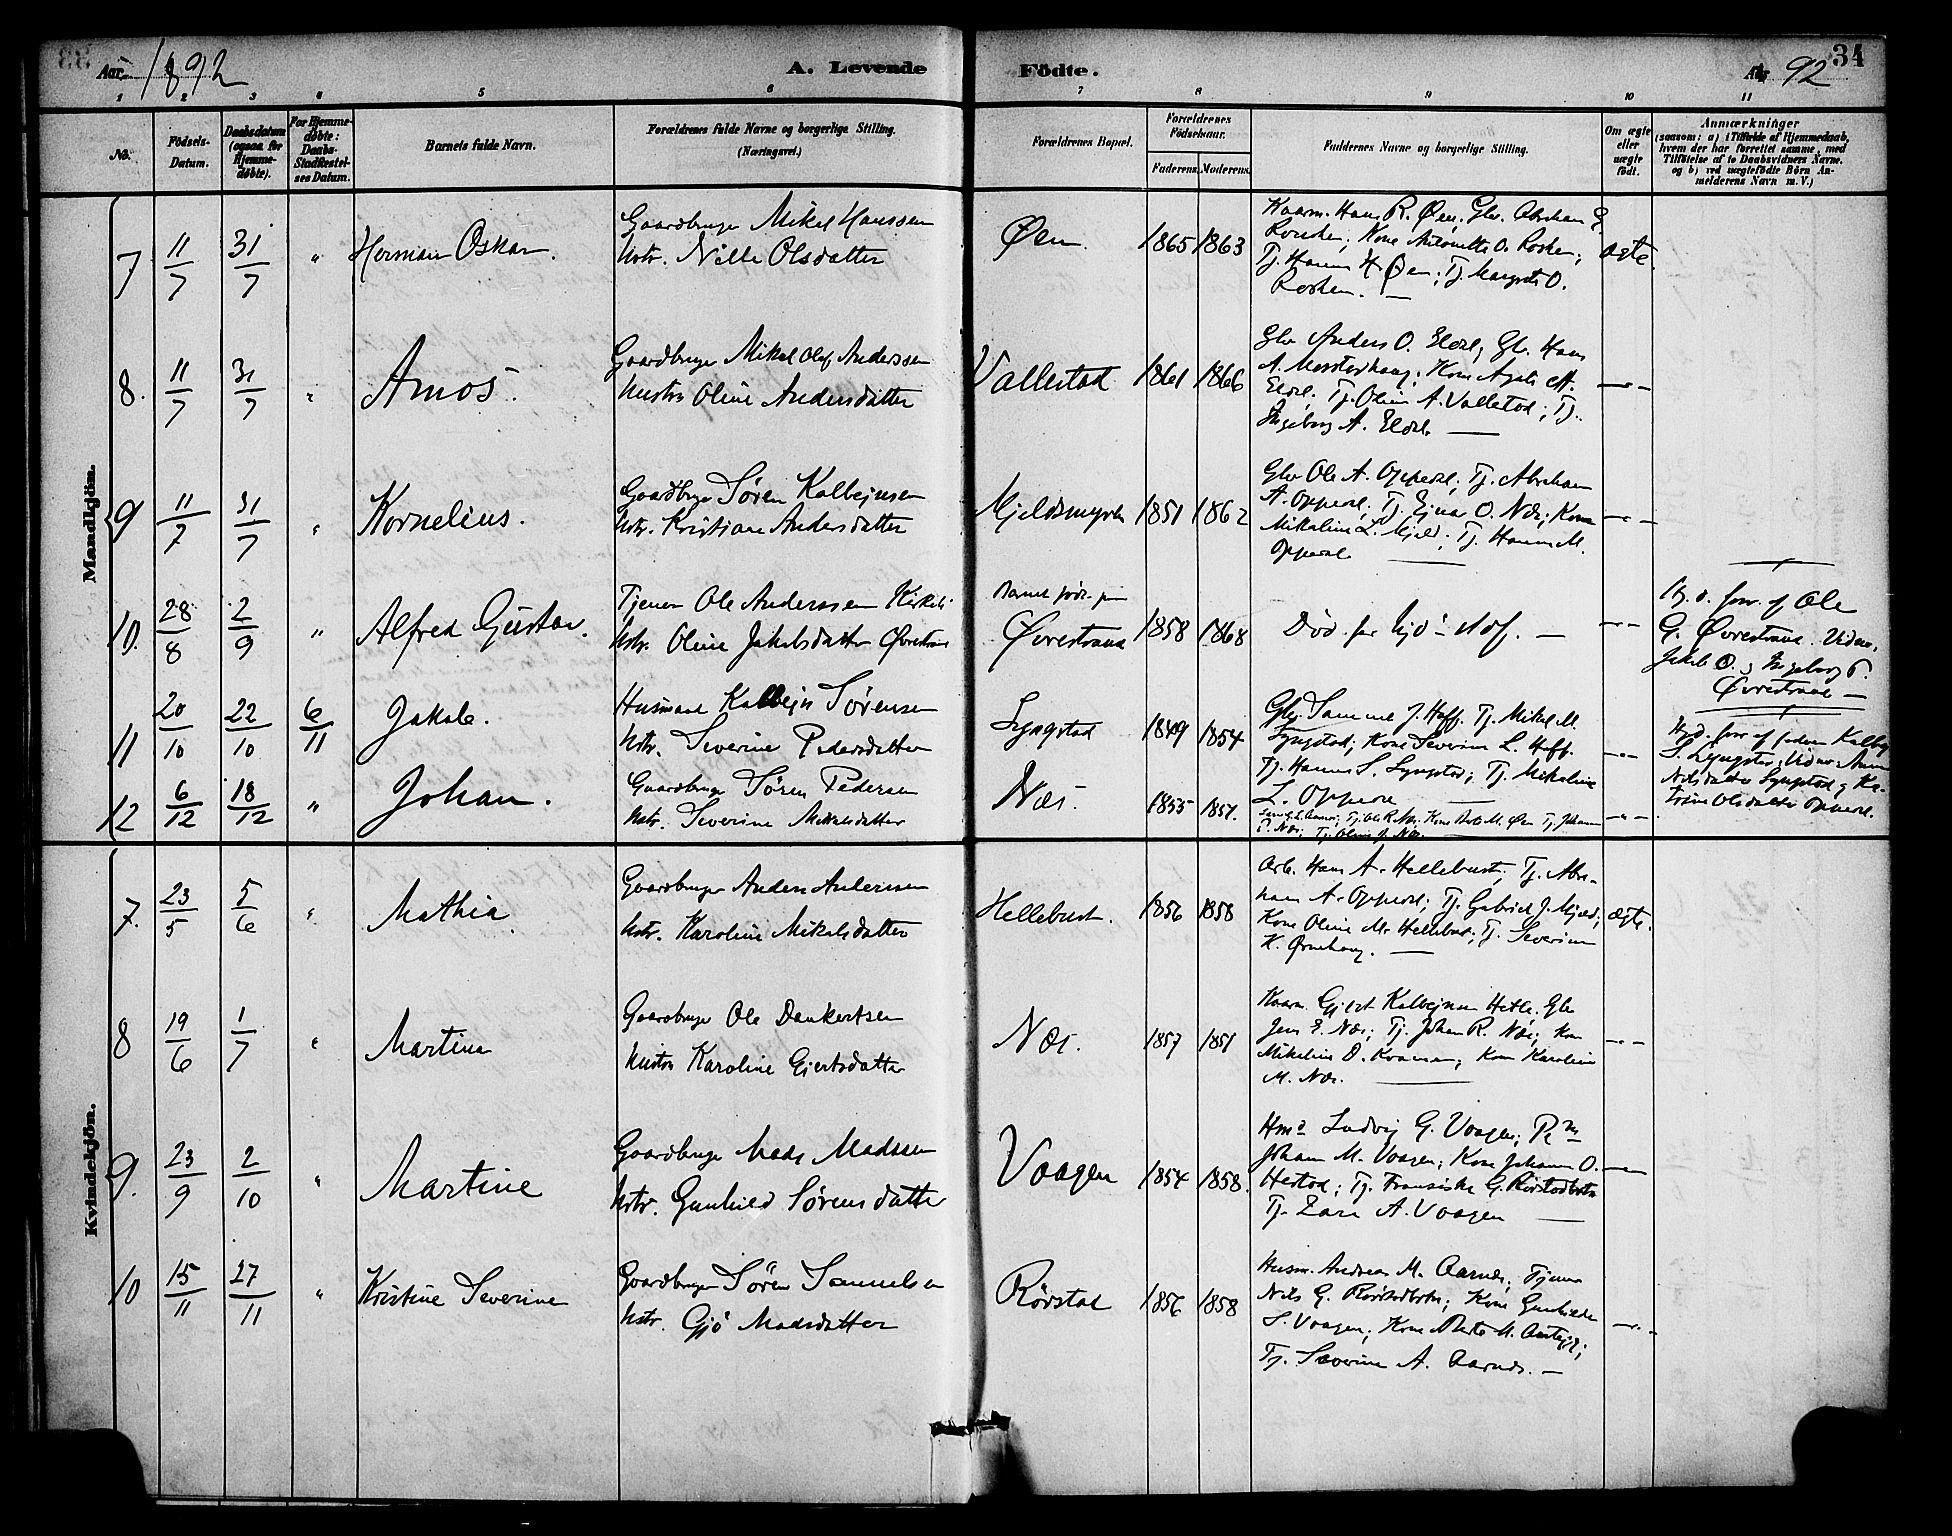 Aar 1892
A. Levende
Fødte.
Aar 92
34
1 2 3 4 5 6 7 8 9 10 11
No.
Fødsels-Datum.
Daabsdatum (ogsaa for Hjemme-døbte).
For Hjemme-døbte: Daabs-Stadfæstel-ses Datum.
Barnets fulde Navn.
Forældrenes fulde Navne og borgerlige Stilling. (Næringsvei.)
Forældrenes Bopæl.
Forældrenes Fødselsaar.
Faderens. Moderens.
Faddernes Navne og borgerlige Stilling.
Om ægte eller uægte født.
Anmærkninger
(saasom: a) i Tilfælde af Hjemmedaab,
hvem der har forrettet samme, med
Tilføielse af to Daabsvidners Navne.
og b) ved uægtefødte Børn An-
melderens Navn m. V.)
Mandkjön.
7 11/7 31/7 " Herman Oskar.
Gaardbruger Mikal Hanssen
Hstr. Nille Olsdatter
Øen. 1865 1863
Kaarm. Hans R. Øen; Gbr. Abraham
Kone Antonette O.
Tj. Hanna H. Øen; Tj. Margrete O.
ægte.
8. 11/7 31/7 " Amos.
Gaardbruger Mikal Olaf Anderssen
Hustru Oline Andersdatter
Vallestad 1861 1866
Gbr Anders O. Eldal; Gbr. Hans
A. Kone A.
Eldal. Tj. Oline A. Vallestad; Tj.
Ingeborg A. Eldal. —
— " —
9 11/7 31/7 " Kornelius.
Gaardbrger Søren Kolbejnsen
Hstr. Kristiane Andersdatter
Mjeldsmyren 1851 1862
Gbr Ole A. Oppedal; Tj. Abraham
A. Oppedal; Tj. Ejnar O. Næs; Kone
Mikaline L. Mjeld; Tj. Hanna M.
Oppedal —
— " —
10. 28/8 2/9 " Alfred Gustav.
Tjener Ole Anderssen
Hstr. Oline Jakobsdatter Øvrestrand
Barnet født paa
Øvrestrand 1858 1868
Død før —
— " —
Hj. d. forr. af Ole
G. Øvrestrand. Vidner.
Jakob O. og Ingeborg
Øvrestrand —
11 20/10 22/10 6/11 Jakob.
Husmand Kolbejn Sørensen
Hstr. Severine Pedersdatter
Lyngstad 1849 1854
Gbr. Samuel J. Hoff. Tj. Mikal M.
Lyngstad; Kone Severine L. Hoff.
Tj. Hanna S. Lyngstad; Tj. Mikaline
L. Oppedal —
— " —
Hjd. forr af faderen Kolbejn
S. Lyngstad; Vidner Anna
Nilsdatter Lyngstad og Ka-
trine Olsdatter Oppedal.
12 6/12 18/12 " Johan.
Gaardbruger Søren Pedersen
Hstr. Severine Mikalsdatter
Næs. 1855 1857.
Tj. Ole R. Næs; Kone M. Øen Tj. Johanne
P. Næs; Tj. Oline J. Næs —
— " —
Kvindekjön.
7. 23/5 5/6 " Mathia.
Gaardbruger Anders Andersen
Hstr. Karoline Mikalsdatter
Hellebust. 1856 1858
Arb. Hans A. Hellebust; Tj. Abra-
ham A. Oppedal; Tj. Gabriel J. Mjeld;
Kone Oline M. Hellebust; Tj. Severine
K. Ørnehaug. —
ægte.
8 19/6 1/7 " Martina
Gaardbruger Ole Dankertsen
Hustru Karoline Gjertsdatter
Næs. 1857 1851
Kaarm. Gjert Kolbejnsen Hetle. Gbr
Jens E. Næs; Tj. Johan R. Næs; Kone
Mikaline D. Kvamen; Kone Karoline
M. Næs. —
— " —
9. 23/9 2/10 " Martine
Gaardbruger Mads Madssen
Hstr. Gunhild Sørensdatter
Vaagen 1854 1858.
Hmd Ludvig G. Vaagen; Pgm
Johan M. Vaagen; Kone Johanne O.
Hestad; Tj. Fransiska G. Rørstadbotn
Tj. Zara A. Vaagen —
— " —
10 15/11 27/11 " Kristine Severine
Gaardbruger Søren Samuelsen
Hstr. Gjø Madsdatter
Rørstad 1856 1858
Husm. Andreas M. Aarnes; Tjener
Nils G. Rørstadbotn; Kone Gunhild
S. Vaagen; Kone Berta M.
Tj. Severine A. Aarnes. —
— " —